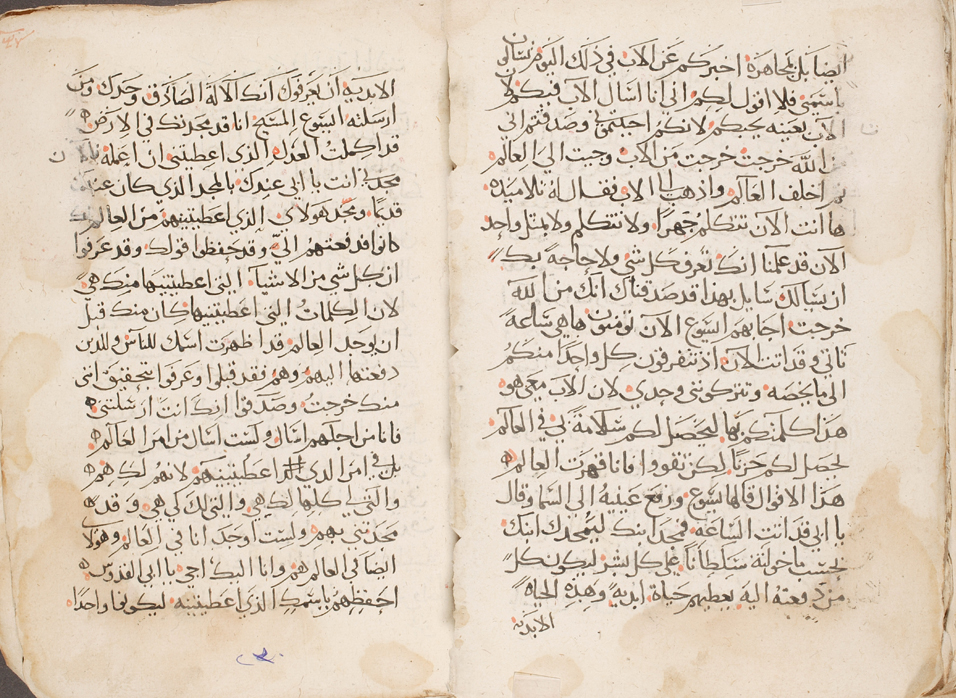 ايضا بل مجاهرة اخبركم عن الاب في ذلك اليوم تسالون
باسمي فلا اقول لكم اني انا اسال الاب فيكم لان
الاب بعينه يحبكم لانكم احببتموني وصدقتم اني
من الله خرجت خرجت من الاب وجيت الى العالم
ثم اخلف العالم واذهب الى الاب فقال له تلاميذه
ها انت الان تتكلم جهرا ولا تتكلم ولا بمثل واحد
الان قد علمنا انك تعرف كل شي ولا حاجة بك
ان يسالك سايل بهذا قد صدقناك انك من الله
خرجت اجابهم ايسوع الان تومنون ها هي ساعة
تاتي وقد اتت الان اذ تتفرقون كل واحد منكم
الى ما يخصه وتتركوني وحدي لان الاب معي هو
هذا كلمتكم بها ليحصل لكم سلامة بي في العالم
يحصل لكم حزنا لكن تقووا فانا قهرت العالم
هذا الاقوال قالها يسوع ورفع عينيه الى السما وقال
يا ابي قد اتت الساعة فمجد ابنك ليمجدك ابنك
بحسب ما خولته سلطانا على كل بشر ليكون كل
من دفعته اليه يعطيهم حياة ابدية وهذه الحياة
الابدية
الابدية ان يعرفوك انك الالة الصادق وحدك ومن
ارسلته اليسوع المسيح انا قد مجدتك في الارض
قد اكملت العمل الذي اعطيتني ان اعمله والان
مجدني انت يا ابي عندك بالمجد الذي كان عندك
قديما ومجد هولاي الذي اعطيتنيهم من العالم
كانوا قد دفعتهم الي وقد حفظوا قولك وقد عرفوا
ان كل شي من الاشيا التي اعطيتنيها منك هي
لان الكلمات التي اعطيتنيها كان منك قبل
ان يوجد العالم قد اظهرت اسمك للناس والذين
دفعتها اليهم وهم فقد قبلوا وعرفوا بتحقيق انني
منك خرجت وصدقوا انك انت ارسلتني
فانا من اجلهم اسال ولست اسال من امر العالم
بل في امر الذي اعطيتنيهم لانهم لك هم
والتي لي كلها لك هي والتي لك لي هي وقد
مجدتني بهم ولست اوجد انا في العالم وهولا
ايضا في العالم هم وانا اليك اجي يا ابي القدوس
احفظهم باسمك الذي اعطيتنيه ليكونوا واحدا